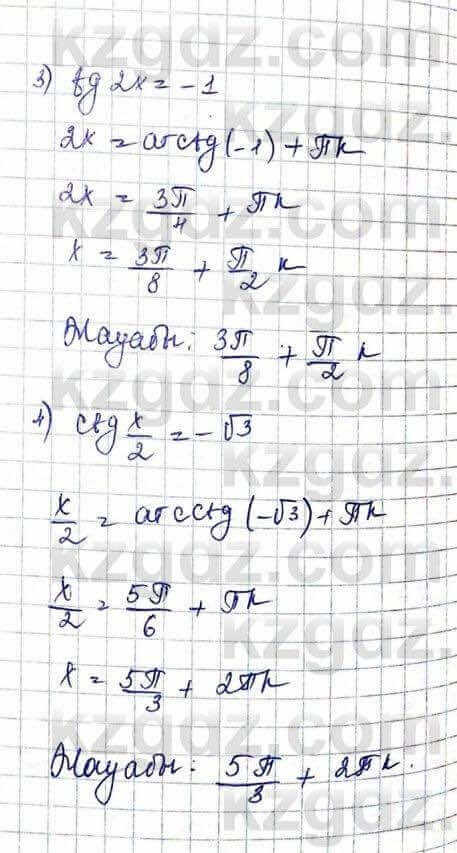 3) tg 2x = -1
2x = arctg(-1) + πk
2x = 3π/4 + πk
x = 3π/8 + π/2 k
Жауабы: 3π/8 + π/2 k
4) ctg x/2 = -√3
x/2 = arcctg (-√3) + πk
x/2 = 5π/6 + πk
x = 5π/3 + 2πk
Жауабы: 5π/3 + 2πk.
kzgdz.com